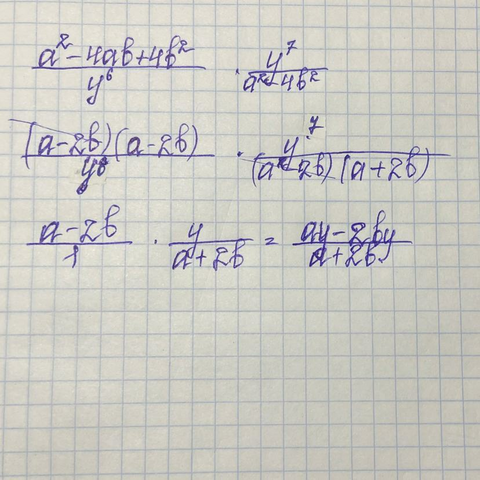 (a² - 4ab + 4b²)/y⁶ · y⁷/(a² - 4b²)
((a - 2b)(a - 2b))/y⁶ · y⁷/((a - 2b)(a + 2b))
(a - 2b)/1 · y/(a + 2b) = (ay - 2by)/(a + 2b)